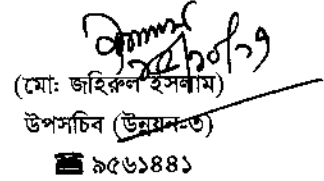 (মো: জহিরুল ইসলাম)
উপসচিব (উন্নয়ন-৩)
☎ ৯৫৬১৪৪১